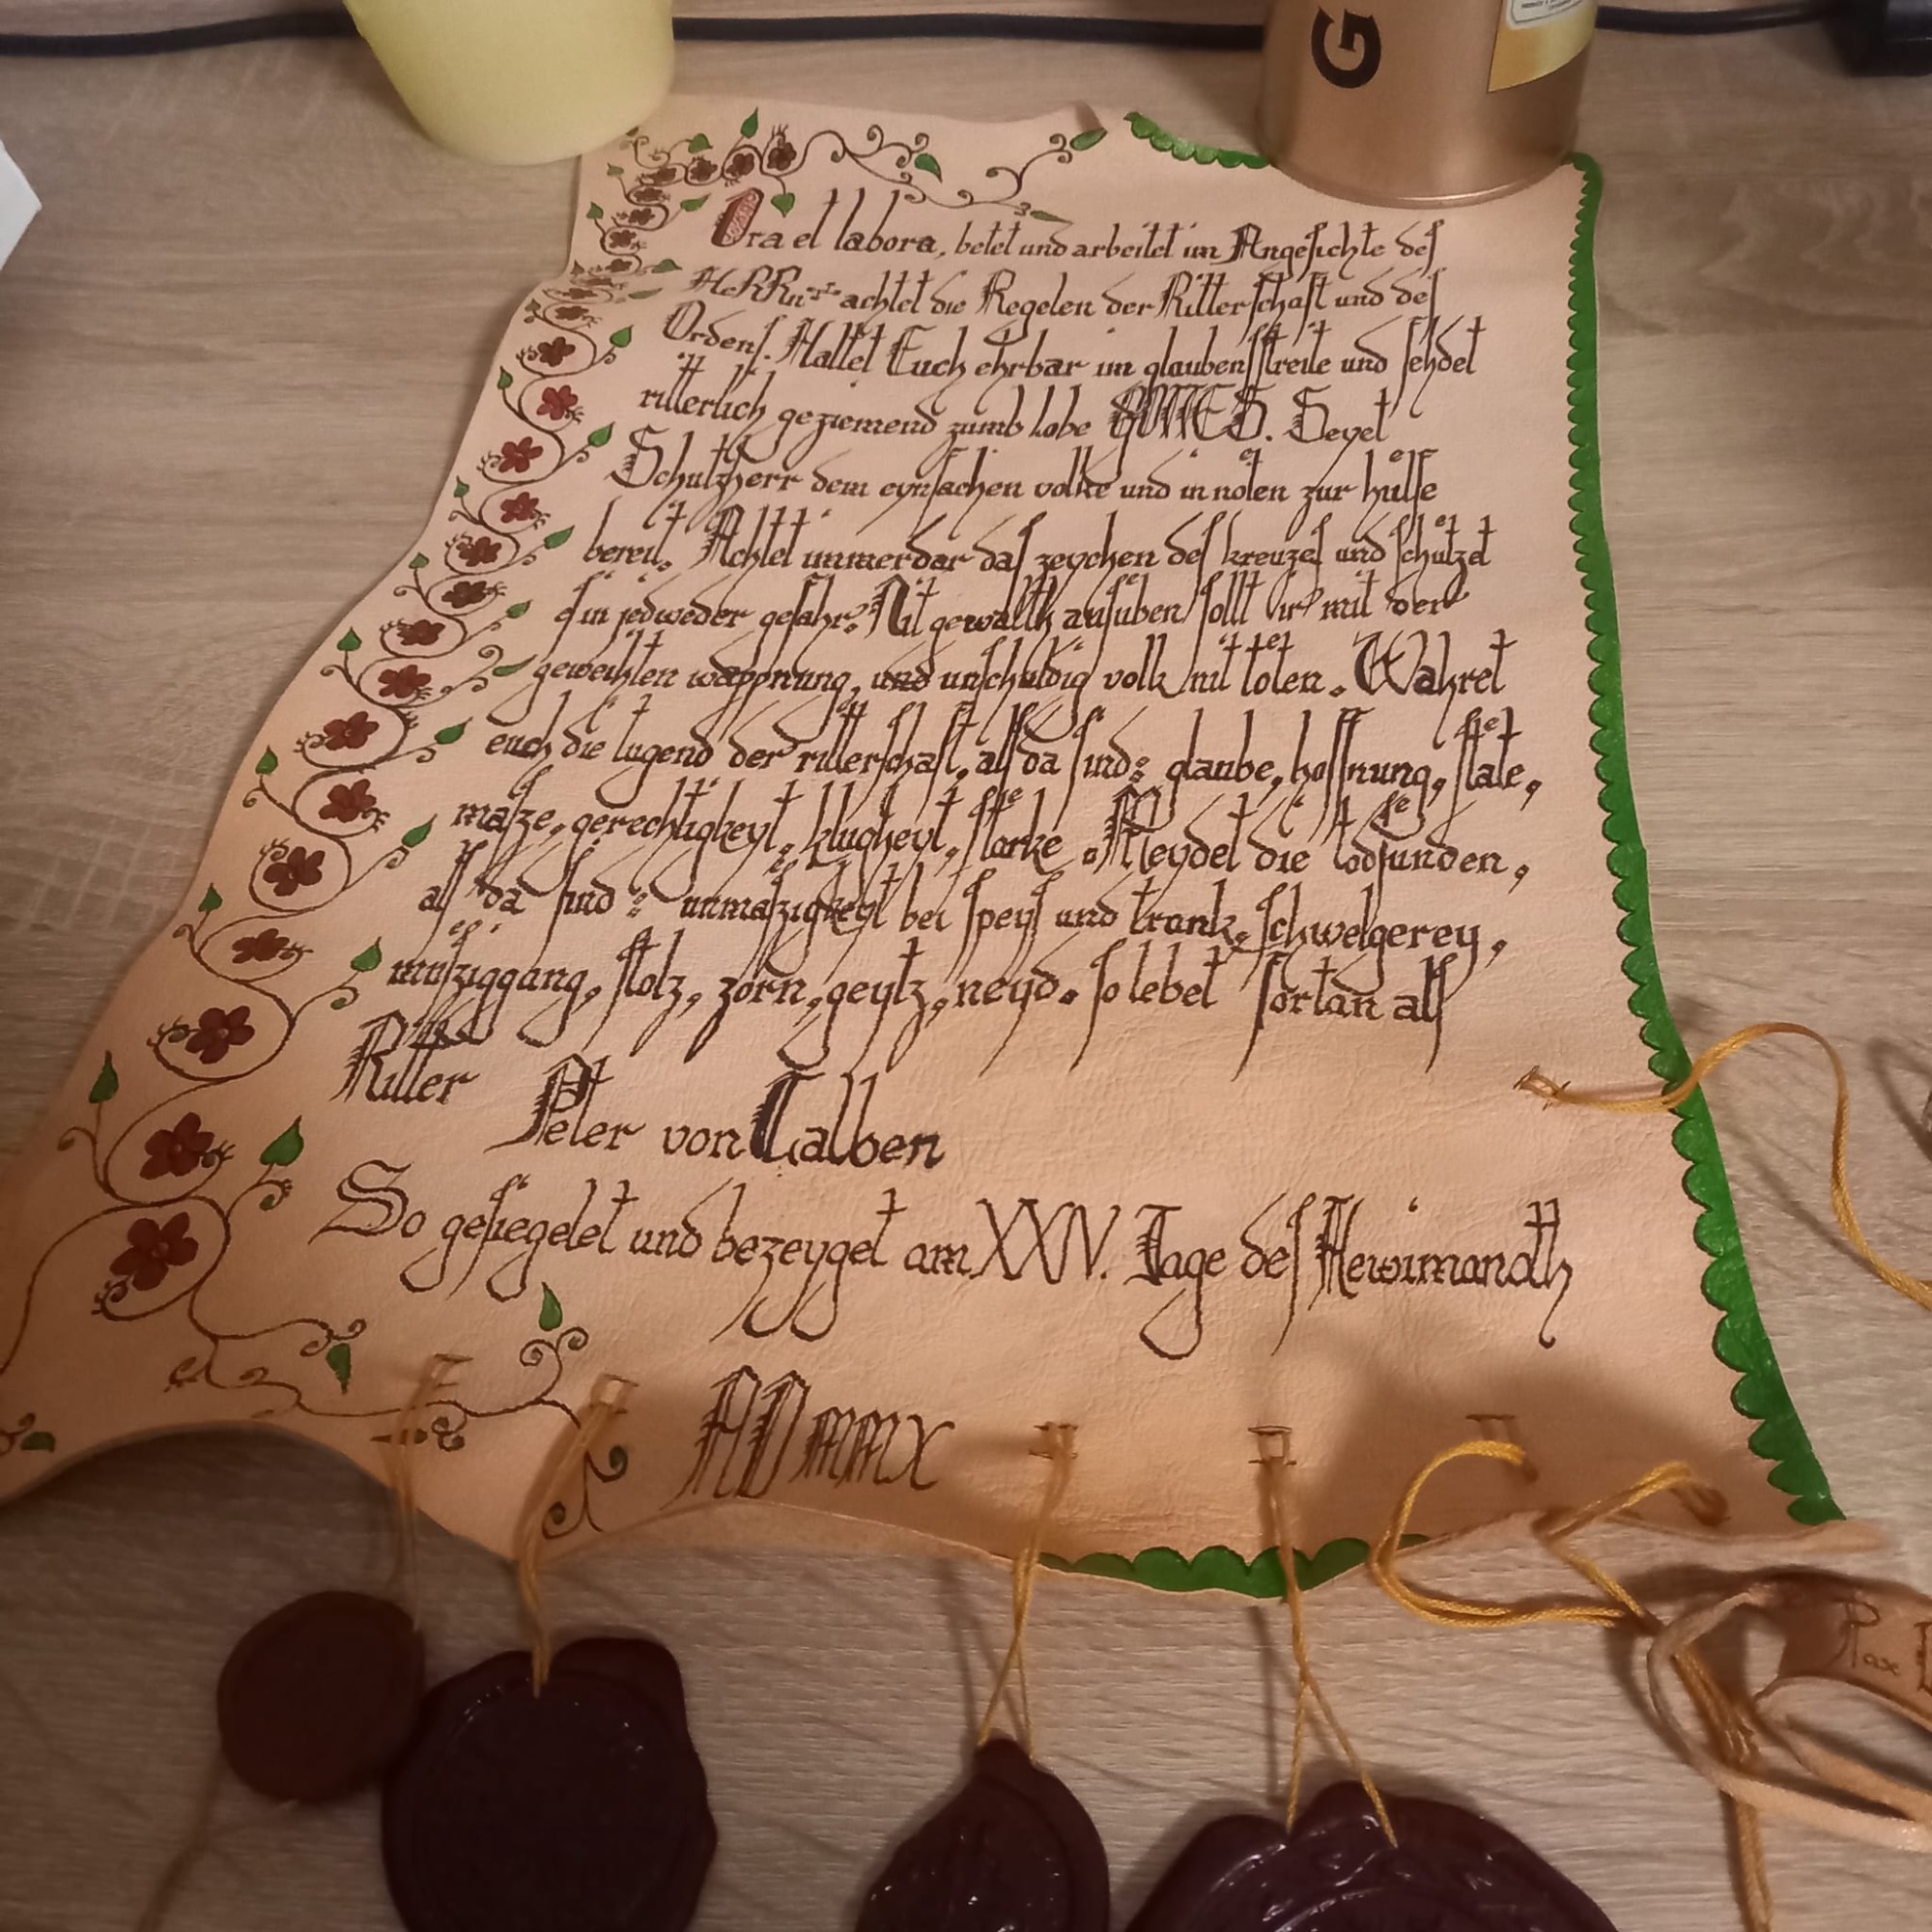 G
Ora et labora, betet und arbeitet im Angesichte des
HeRRn achtet die Regelen der Ritterschaft und des
Ordens. Haltet Euch ehrbar im glaubensstreite und fehdet
ritterlich geziemend zumb lobe GOTTES. Seyet
Schutzherr dem eynfachen volke und in noͤten zur huͤlfe
bereit. Achtet immerdar das zeychen des kreuzes und schuͤtzet
in jedweder gefahr. Nit gewalth ausuͤben sollt ir mit der
geweihten wappnung, und unschuldig volk nit toͤten. Wahret
euch die tugend der ritterschaft, alß da sind: glaube, hoffnung, staͤte,
maße, gerechtigkeyt, klugheyt, staͤrke. Meydet die todsuͤnden,
alß da sind: unmaͤßigkeyt bei speyß und trank, schwelgerey,
muͤßiggang, stolz, zorn, geytz, neyd. so lebet fortan alß
Ritter
Peter von Calben
So gesiegelet und bezeyget am XXIV. Tage des Hewimanoth
AD MMX
Pax